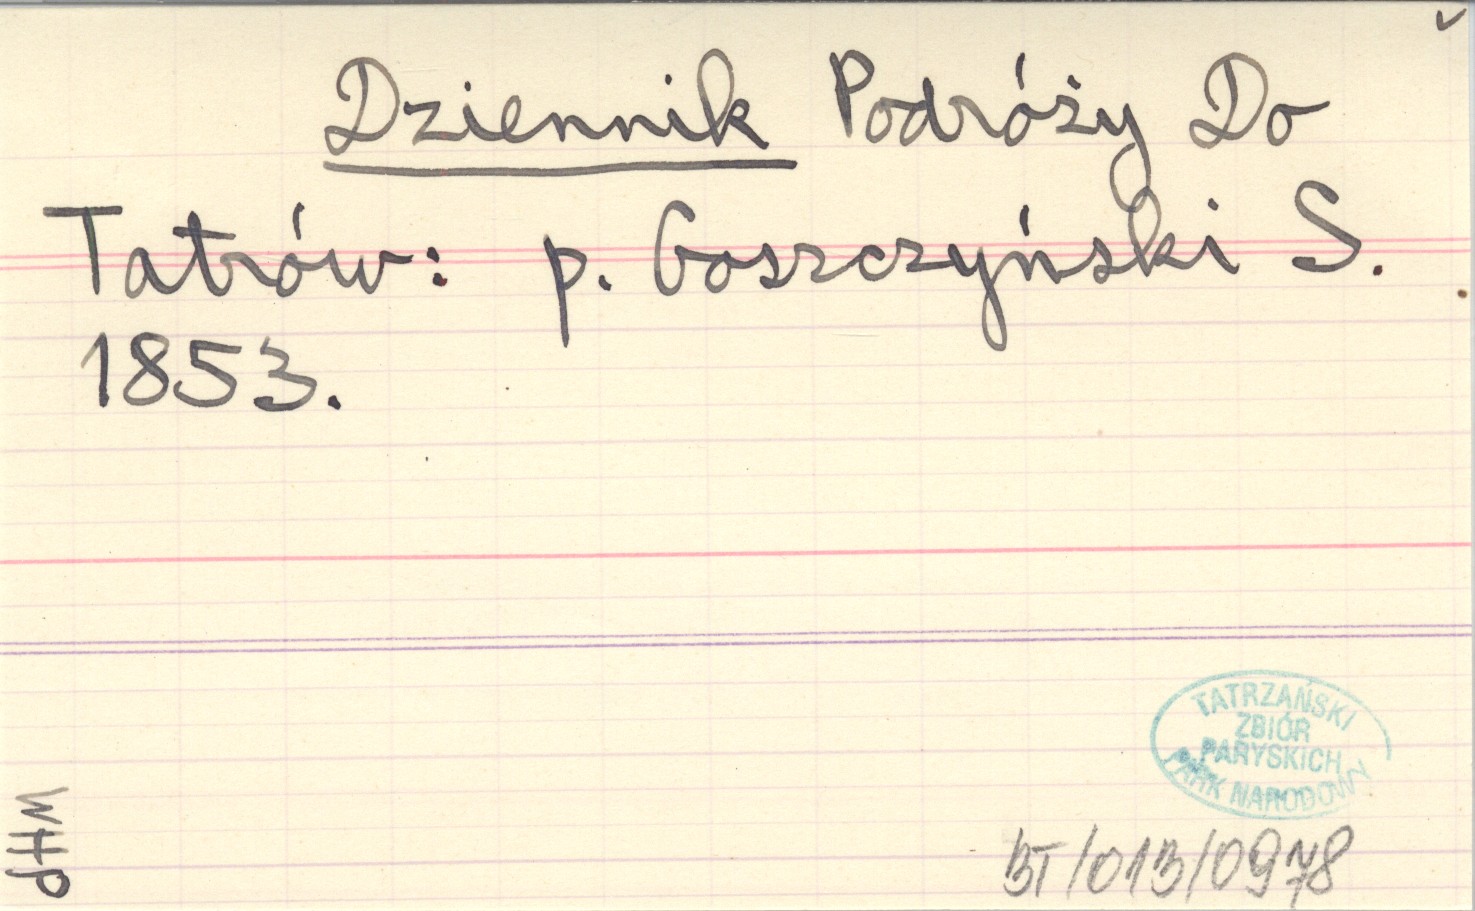 ✓
Dziennik Podróży Do
Tatrów: p. Goszczyński S.
1853.
TATRZAŃSKI
ZBIÓR
PARYSKICH
PARK NARODOWY
BT/013/0978
WHP